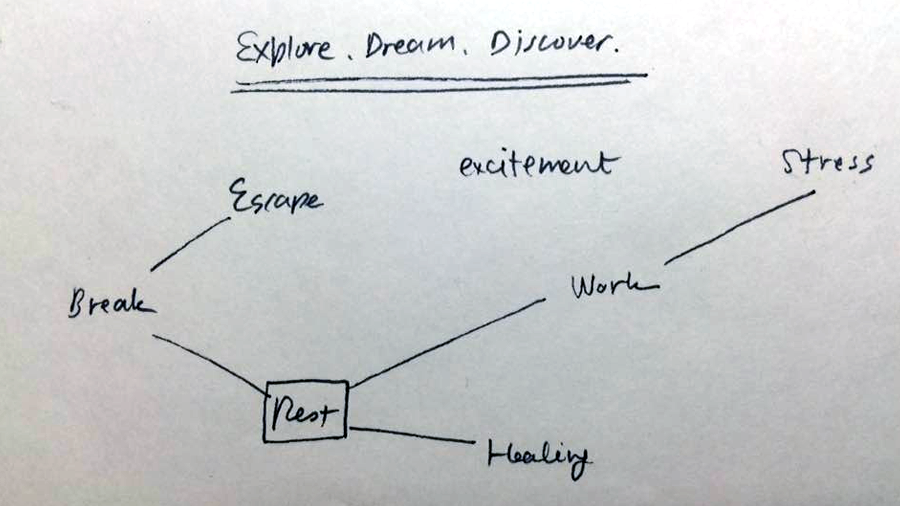 Explore. Dream. Discover.
excitement
Stress
Escape
Work
Break
Rest
Healing